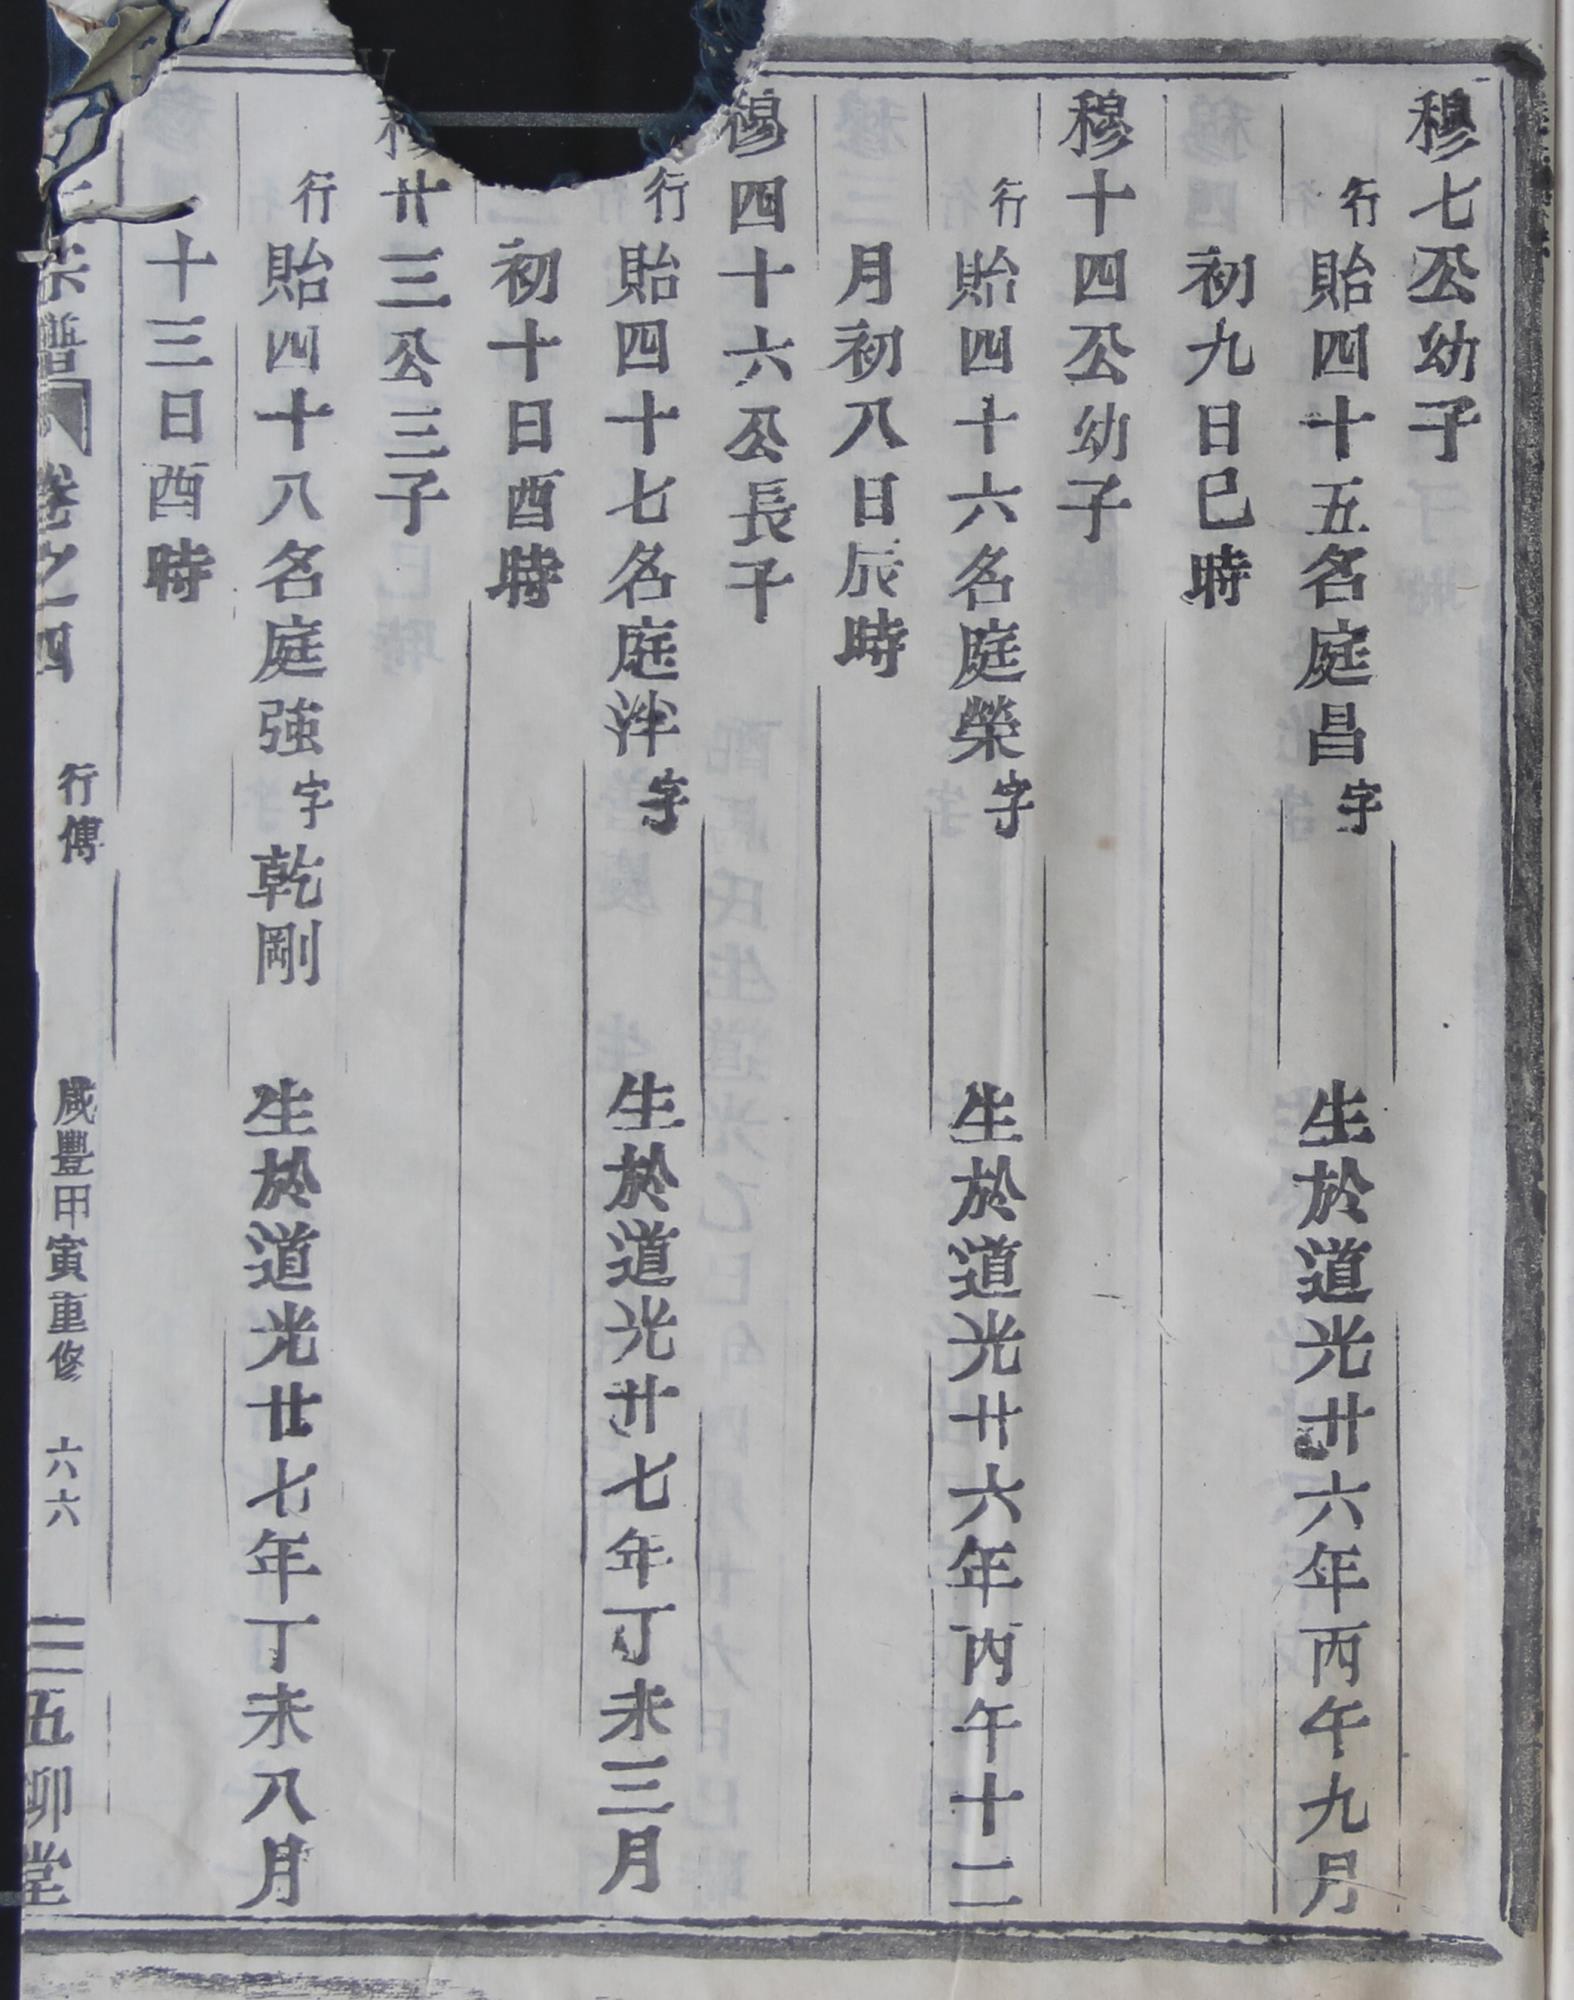 穆七公幼子
行貽四十五名庭昌字 生於道光廿六年丙午九月
初九日巳時
穆十四公幼子
行貽四十六名庭榮字 生於道光廿六年丙午十二
月初八日辰時
穆四十六公長子
行貽四十七名庭泮字 生於道光廿七年丁未三月
初十日酉時
穆廿三公三子
行貽四十八名庭強字乾剛 生於道光廿七年丁未八月
十三日酉時
宗譜 卷之四 行傳 咸豐甲寅重修 六六 五柳堂